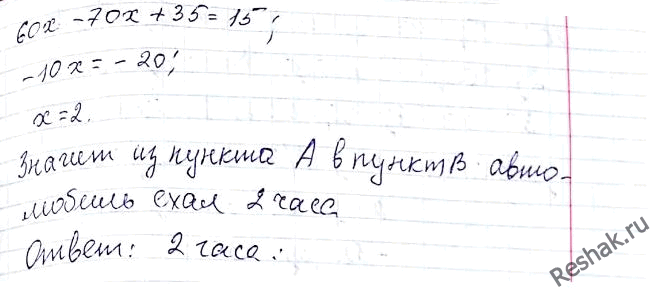 60x - 70x + 35 = 15;
-10x = -20;
x = 2.
Значит из пункта А в пункт В авто-
мобиль ехал 2 часа
Ответ: 2 часа.
Reshak.ru